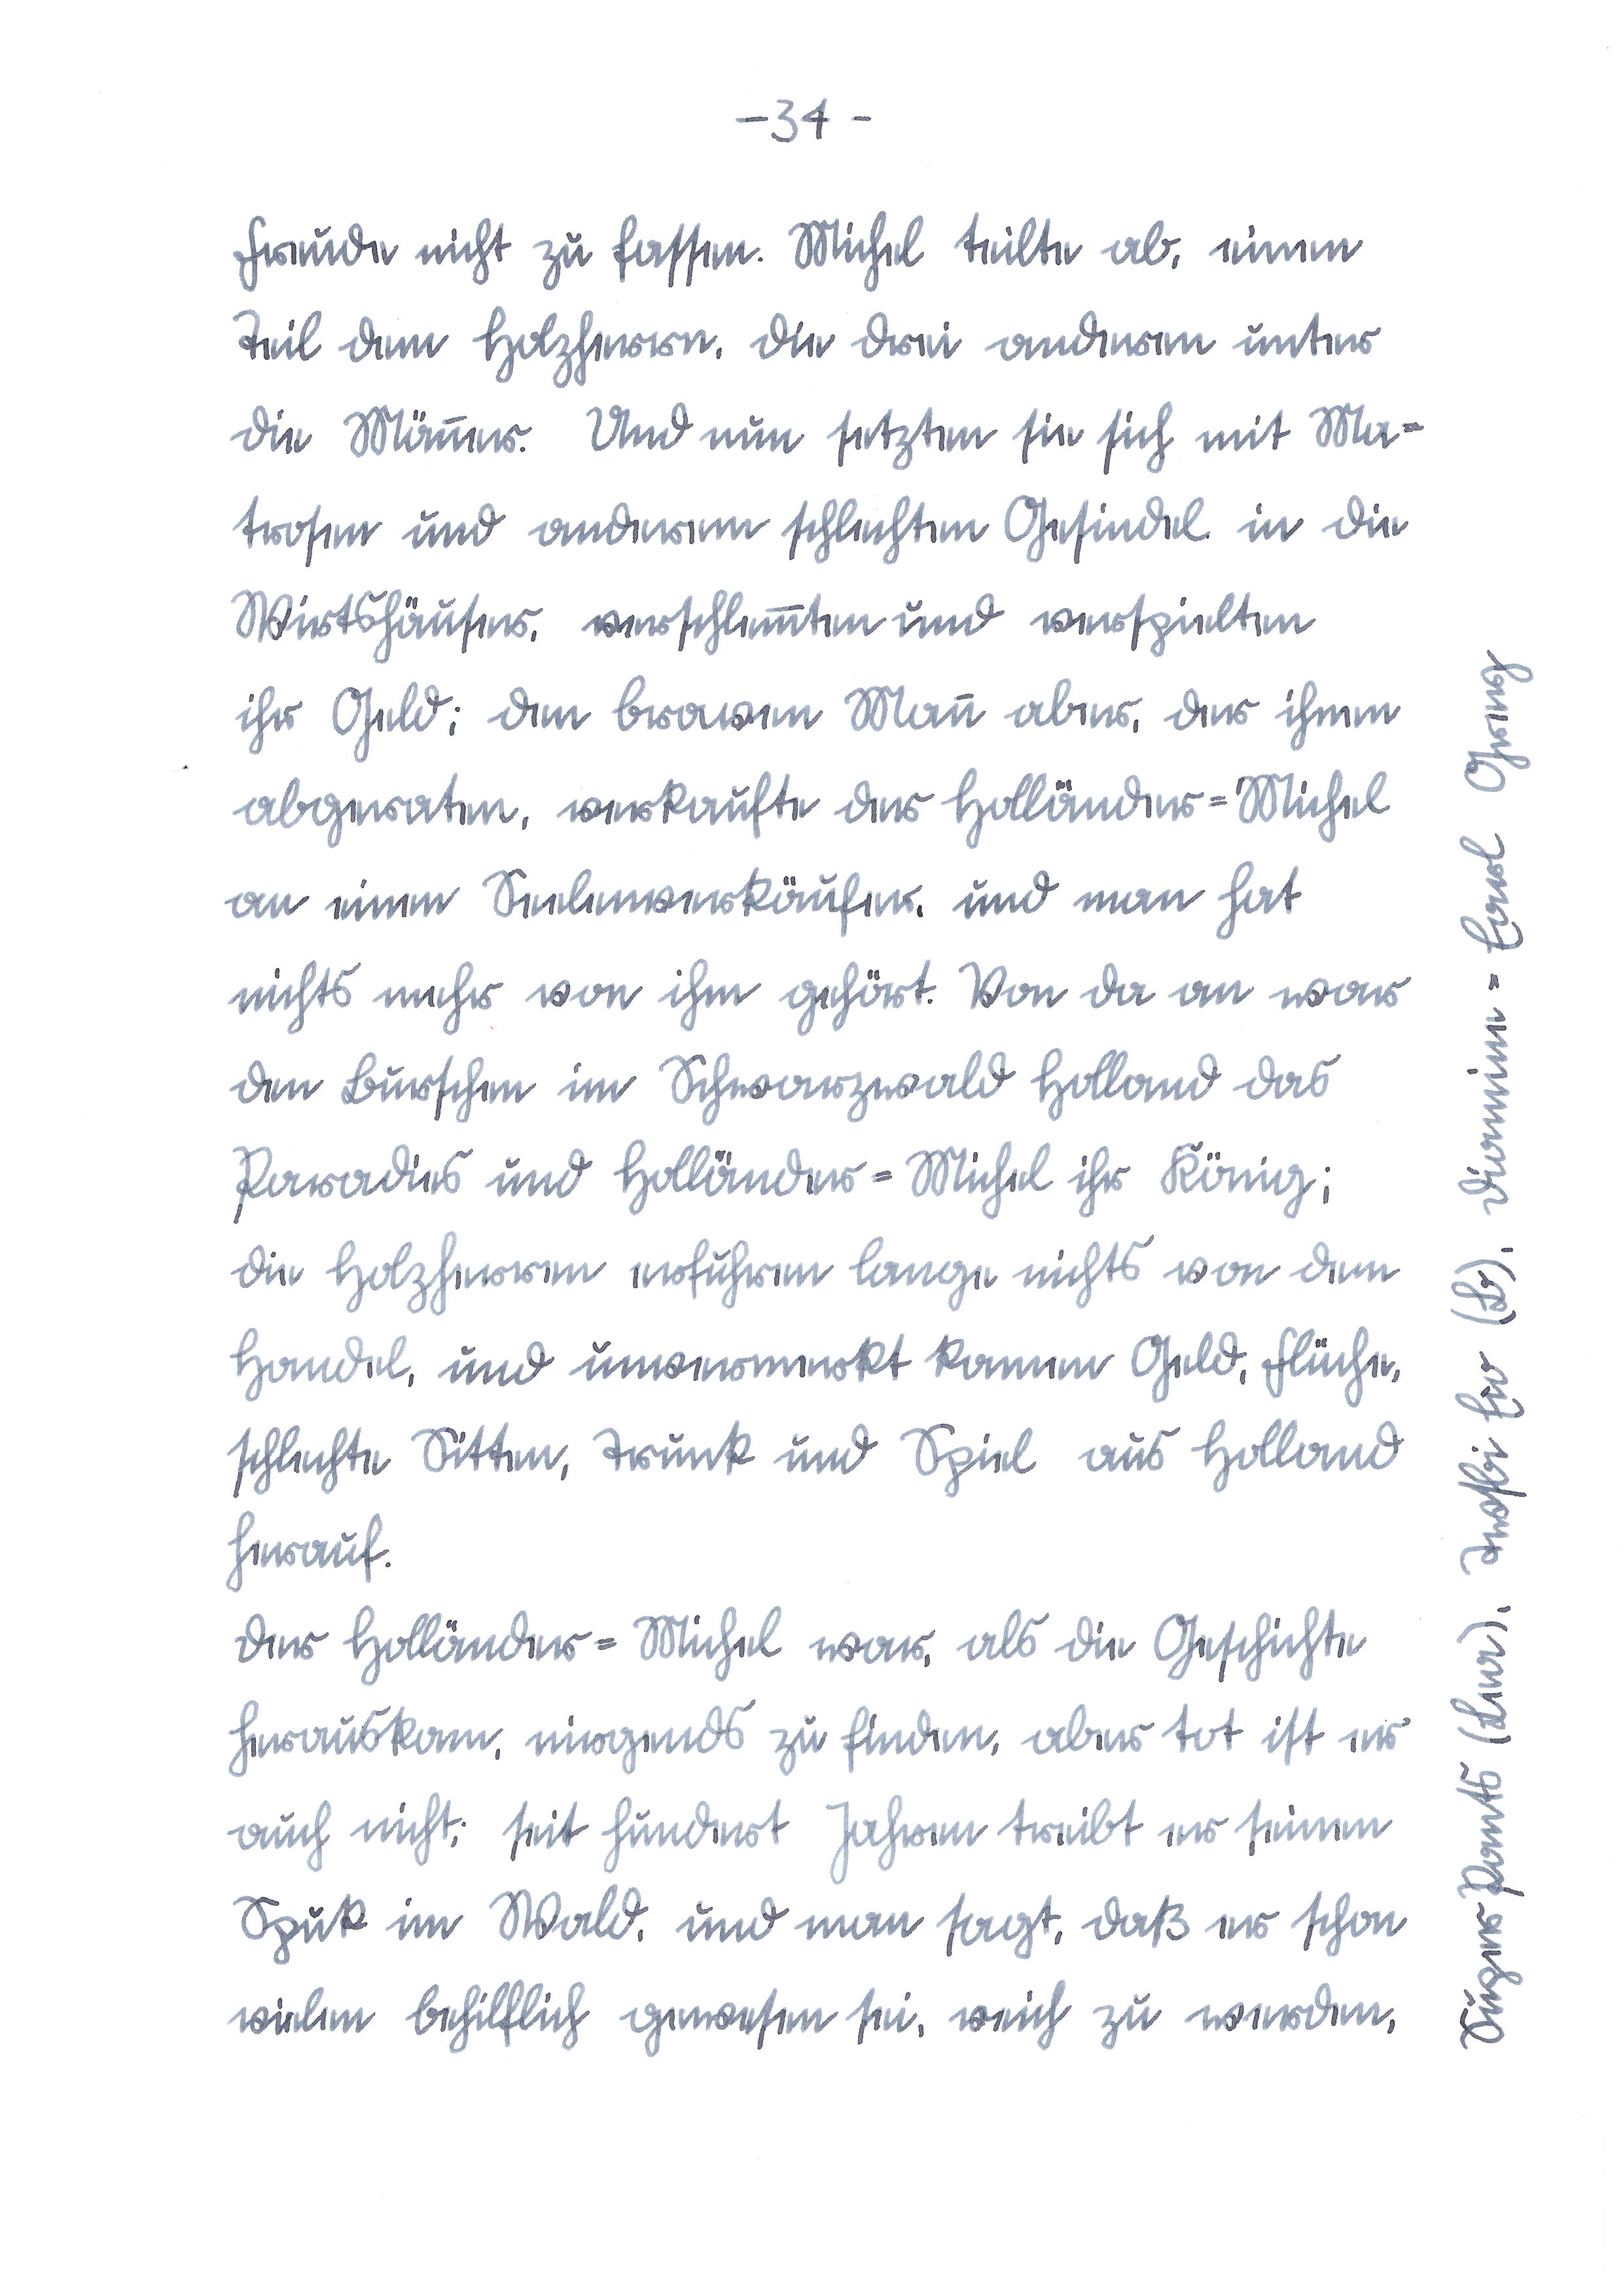 -34-
Freude nicht zu fassen. Michel teilte ab, einen
Teil dem Holzherrn, die drei anderen unter
die Mäñer. Und nun setzten sie sich mit Ma=
trosen und anderem schlechten Gesindel in die
Wirtshäuser, verschlem̄ten und verspielten
ihr Geld; den braven Mañ aber, der ihnen
abgeraten, verkaufte der Holländer=Michel
an einen Seelenverkäufer, und man hat
nichts mehr von ihm gehört. Von da an war
den Burschen im Schwarzwald Holland das
Paradies und Holländer=Michel ihr König;
die Holzherren erfuhren lange nichts von dem
Handel, und unvermerkt kamen Geld, Flüche,
schlechte Sitten, Trunk und Spiel aus Holland
herauf.
Der Holländer=Michel war, als die Geschichte
herauskam, nirgends zu finden, aber tot ist er
auch nicht; seit hundert Jahren treibt er seinen
Spuk im Wald, und man sagt, daß er schon
vielen behilflich gewesen sei, reich zu werden,